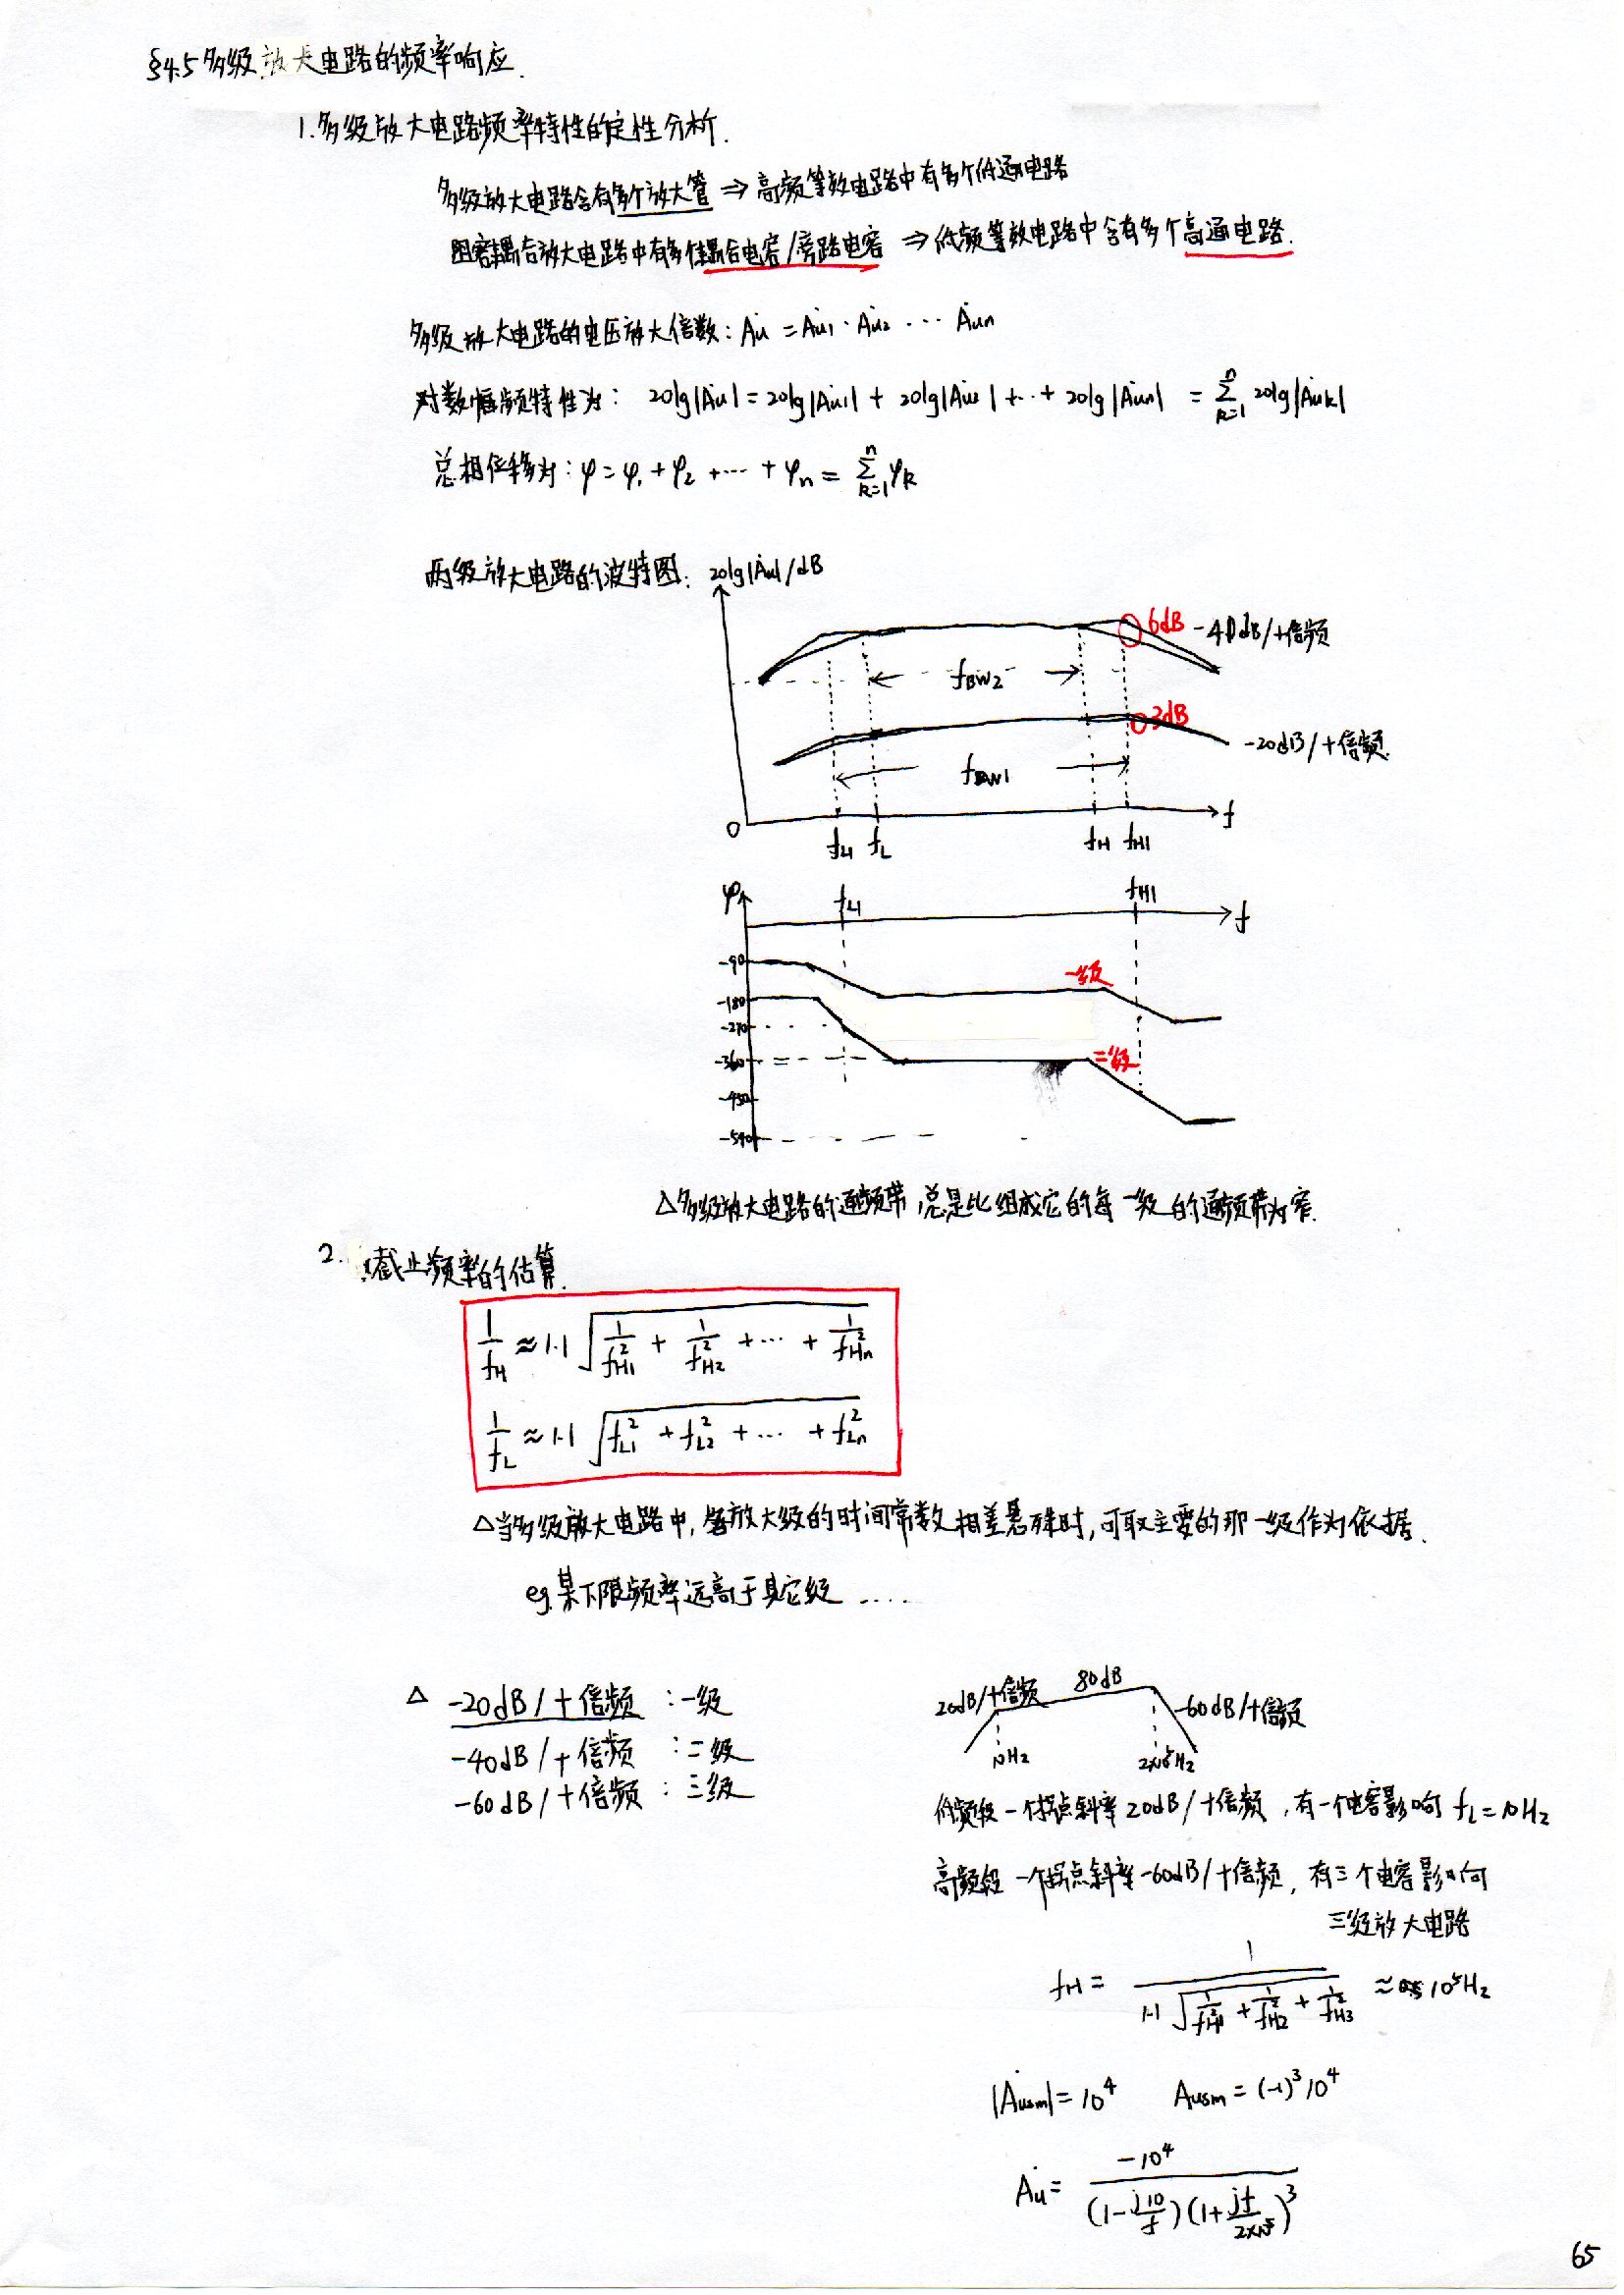 §4.5 多级放大电路的频率响应.
1. 多级放大电路频率特性的定性分析.
多级放大电路含有多个放大管 ⇒ 高频等效电路中有多个低通电路
阻容耦合放大电路中有多个耦合电容/旁路电容 ⇒ 低频等效电路中含有多个高通电路.
多级放大电路的电压放大倍数: Ȧu = Ȧu1 · Ȧu2 ··· Ȧun
对数幅频特性为: 20lg|Ȧu| = 20lg|Ȧu1| + 20lg|Ȧu2| + ··· + 20lg|Ȧun| = Σ(k=1→n) 20lg|Ȧuk|
总相位移为: φ = φ1 + φ2 + ··· + φn = Σ(k=1→n) φk
两级放大电路的波特图: 20lg|Ȧu|/dB
6dB -40dB/十倍频
fBW2
3dB
-20dB/十倍频
fBW1
0 f
fL1 fL fH fH1
φ fL1 fH1 f
-90 一级
-180
-270
-360 二级
-450
-540
△多级放大电路的通频带,总是比组成它的每一级的通频带为窄.
2. 截止频率的估算.
1/fH ≈ 1.1 √(1/fH1² + 1/fH2² + ··· + 1/fHn²)
1/fL ≈ 1.1 √(fL1² + fL2² + ··· + fLn²)
△当多级放大电路中,各放大级的时间常数相差悬殊时,可取主要的那一级作为依据.
eg.某下限频率远高于其它级 ····
△ -20dB/十倍频 : 一级
-40dB/十倍频 : 二级
-60dB/十倍频 : 三级
20dB/十倍频 80dB -60dB/十倍频
10Hz 2×10⁵Hz
低频段一个拐点斜率20dB/十倍频,有一个电容影响 fL=10Hz
高频段一个拐点斜率-60dB/十倍频,有三个电容影响
三级放大电路
fH = 1/(1.1 √(1/fH1² + 1/fH2² + 1/fH3²)) ≈ 10⁵Hz
|Ȧusm| = 10⁴ Ausm = (-1)³10⁴
Ȧu = -10⁴/((1-j10/f)(1+jf/2×10⁵)³)
65